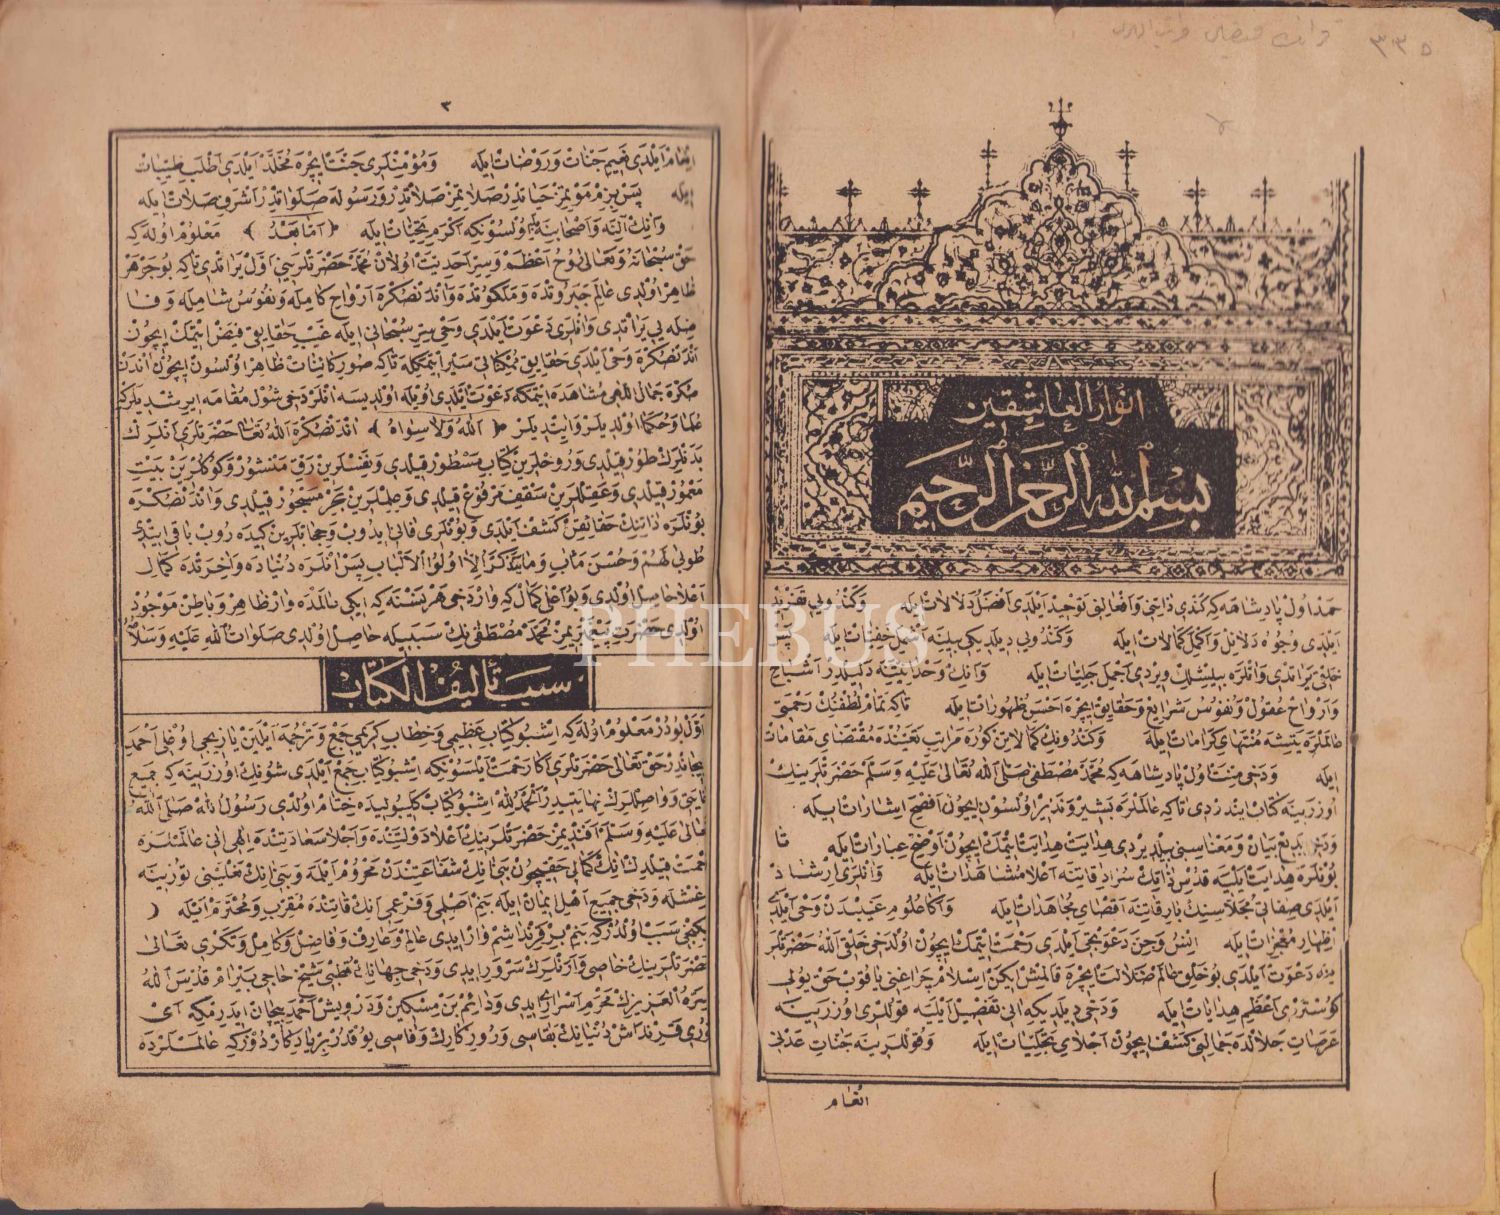 ٣٣٥
انوار العاشقين
بسم الله الرحمن الرحيم
حمد اول پادشاهه كه كندی ذاتنی وافعالنی توحيد ايلدی افضل دلالات ايله وكندويی
ايلدی وجوه دلايل واكمل كمالات ايله وكندويی بيلديكی
خلقی يراتدی وانلره بيلشلك ويردی اجمل جليات ايله وانك وحدانيتنه دليلدر اشباح
وارواح عقول ونفوس شرايع وحقايق ايچره احسن ظهورات ايله تاكه تمام لطفنك رحمتی
عالملره يتيشه منتهای كرامات ايله وكندونك كمالاين كوره مراتب تعيننده مقتضای مقامات
ايله ودخی منت اول پادشاهه كه محمد مصطفی صلی الله تعالی عليه وسلم حضرتلرينك
اوزرينه كتاب ايندردی تاكه عالملره بشير ونذير اولسون ايچون افصح اشارات ايله
بيان ومعناسنی بيلديردی هدايت هدايت ايتمك ايچون اوضح عبارات ايله تا
بونلره هدايت ايليه قدس ذاتك اعلا مشاهدات ايله وانلری ارشاد
ايلدی صفاتی اقصای مجاهدات ايله واكا علوم غيبدن وحی ايلدی
اظهار معجزات ايله انس وجن دعوتجی ايلدی رحمت ايتمك ايچون اولدخی خلق الله حضرتلر
ينه دعوت ايلدی بو خلق ظالم ضلالت ايچره قالمش ايكن اسلام چراغنی ياقوب حق يولی
كوستردی اعظم هدايات ايله ودخی ديلديكه انی تفضيل ايليه قوللری اوزرينه
عرصات جلالده جمالنی كشف ايچون اجلای تجليات ايله وقوللرينه جنات عدنی
انعام
٢
انعام ايلدی نعيم جنات وروضات ايله ومؤمنلری جنت ايچره مخلد ايلدی اطلب طيبات
ايله پس بزم
وانك آلنه واصحابنه اولسونكه اكرم تحيات ايله ﴿ اما بعد ﴾ معلوم اوله كه
حق سبحانه وتعالی روح اعظم وسر احديت اولان محمد حضرتلرينی اول يراتدی تاكه بو جوهر
ظاهر اولدی عالم جبروتده وملكوتده واندنصكره ارواح كامله ونفوس شامله وفا
ضله يی يراتدی وانلری دعوت ايلدی وحی سر سبحانی ايله غيب حقايق فيض ايتمك ايچون
اندنصكره وحی ايلدی حقايق ممكناتی سير ايتمكله تاكه صور كائنات ظاهر اولسون ايچون اندن
صكره جمال اللهی مشاهده ايتمكه دعوت ايلدی اويله اولديسه انلر دخی شول مقامه ايرشديلركه
علما وحكما اولديلر وايتديلر ﴿ الله ولا سواه ﴾ اندنصكره الله تعالی حضرتلری انلرك
بدنلرك طور قيلدی وروحلرين كتاب مسطور قيلدی ونفسلرين رق منشور وكوكللرين بيت
معمور قيلدی وعقللرين سقف مرفوع قيلدی وعلملرين بحر مسجور قيلدی واندنصكره
بونلره ذاتنك حقائقن كشف ايلدی وبونلری فانی ايدوب وحجابلرين كيدروب باقی ايتدی
طوبی لهم وحسن مآب وما يتذكر الا اولوا الالباب پس انلره دنياده واخرتده كمال
اعلا حاصل اولدی وبو اعلا كمال كه وار دخی هر نسنه كه ايكی عالمده وار ظاهر وباطن موجود
اولدی حضرت پيغمبريمز محمد مصطفی نك سببيله حاصل اولدی صلوات الله عليه وسلامه
سبب تأليف الكتاب
اول بودر معلوم اوله كه اشبو كتاب عظيمی وخطاب كريمی جمع وترجمه ايلين يازيجی اوغلی احمد
بيجاندر حق تعالی حضرتلری اكا رحمت ايلسونكه اشبو كتاب جمع ايلدی شونك اوزرينه كه جميع
الحمد لله اشبو كتاب كليبوليده ختام اولدی رسول الله صلی الله
تعالی عليه وسلم افنديمز حضرتلرينك اعلا دولتنده واجلا سعادتنده والهی انی عالملره
رحمت قيلدك انك كمالی حقيچون بنی انك شفاعتندن محروم ايله وبنی انك نعلينی توزينه
ودخی جميع اهل ايمان ايله بنم اصلمی وفرعمی انك قاتنده مقرب ومحترم ايله
ايكنجی سبب اولدركه بنم بر قرنداشم وار ايدی عالم وعارف وفاضل وكامل وتكری تعالی
حضرتلرينك خاصی وارنلرك سروری ايدی ودخی جهانك قطبی شيخ حاجی بيرام قدس الله
سره العزيزك محرم اسراری ايدی ودائم بن مسكين ودرويش احمد بيجان ايدردمكه ای
قرنداش دنيانك بقاسی وروزكارك وفاسی يوقدر بر يادكار دوزكه عالملرده